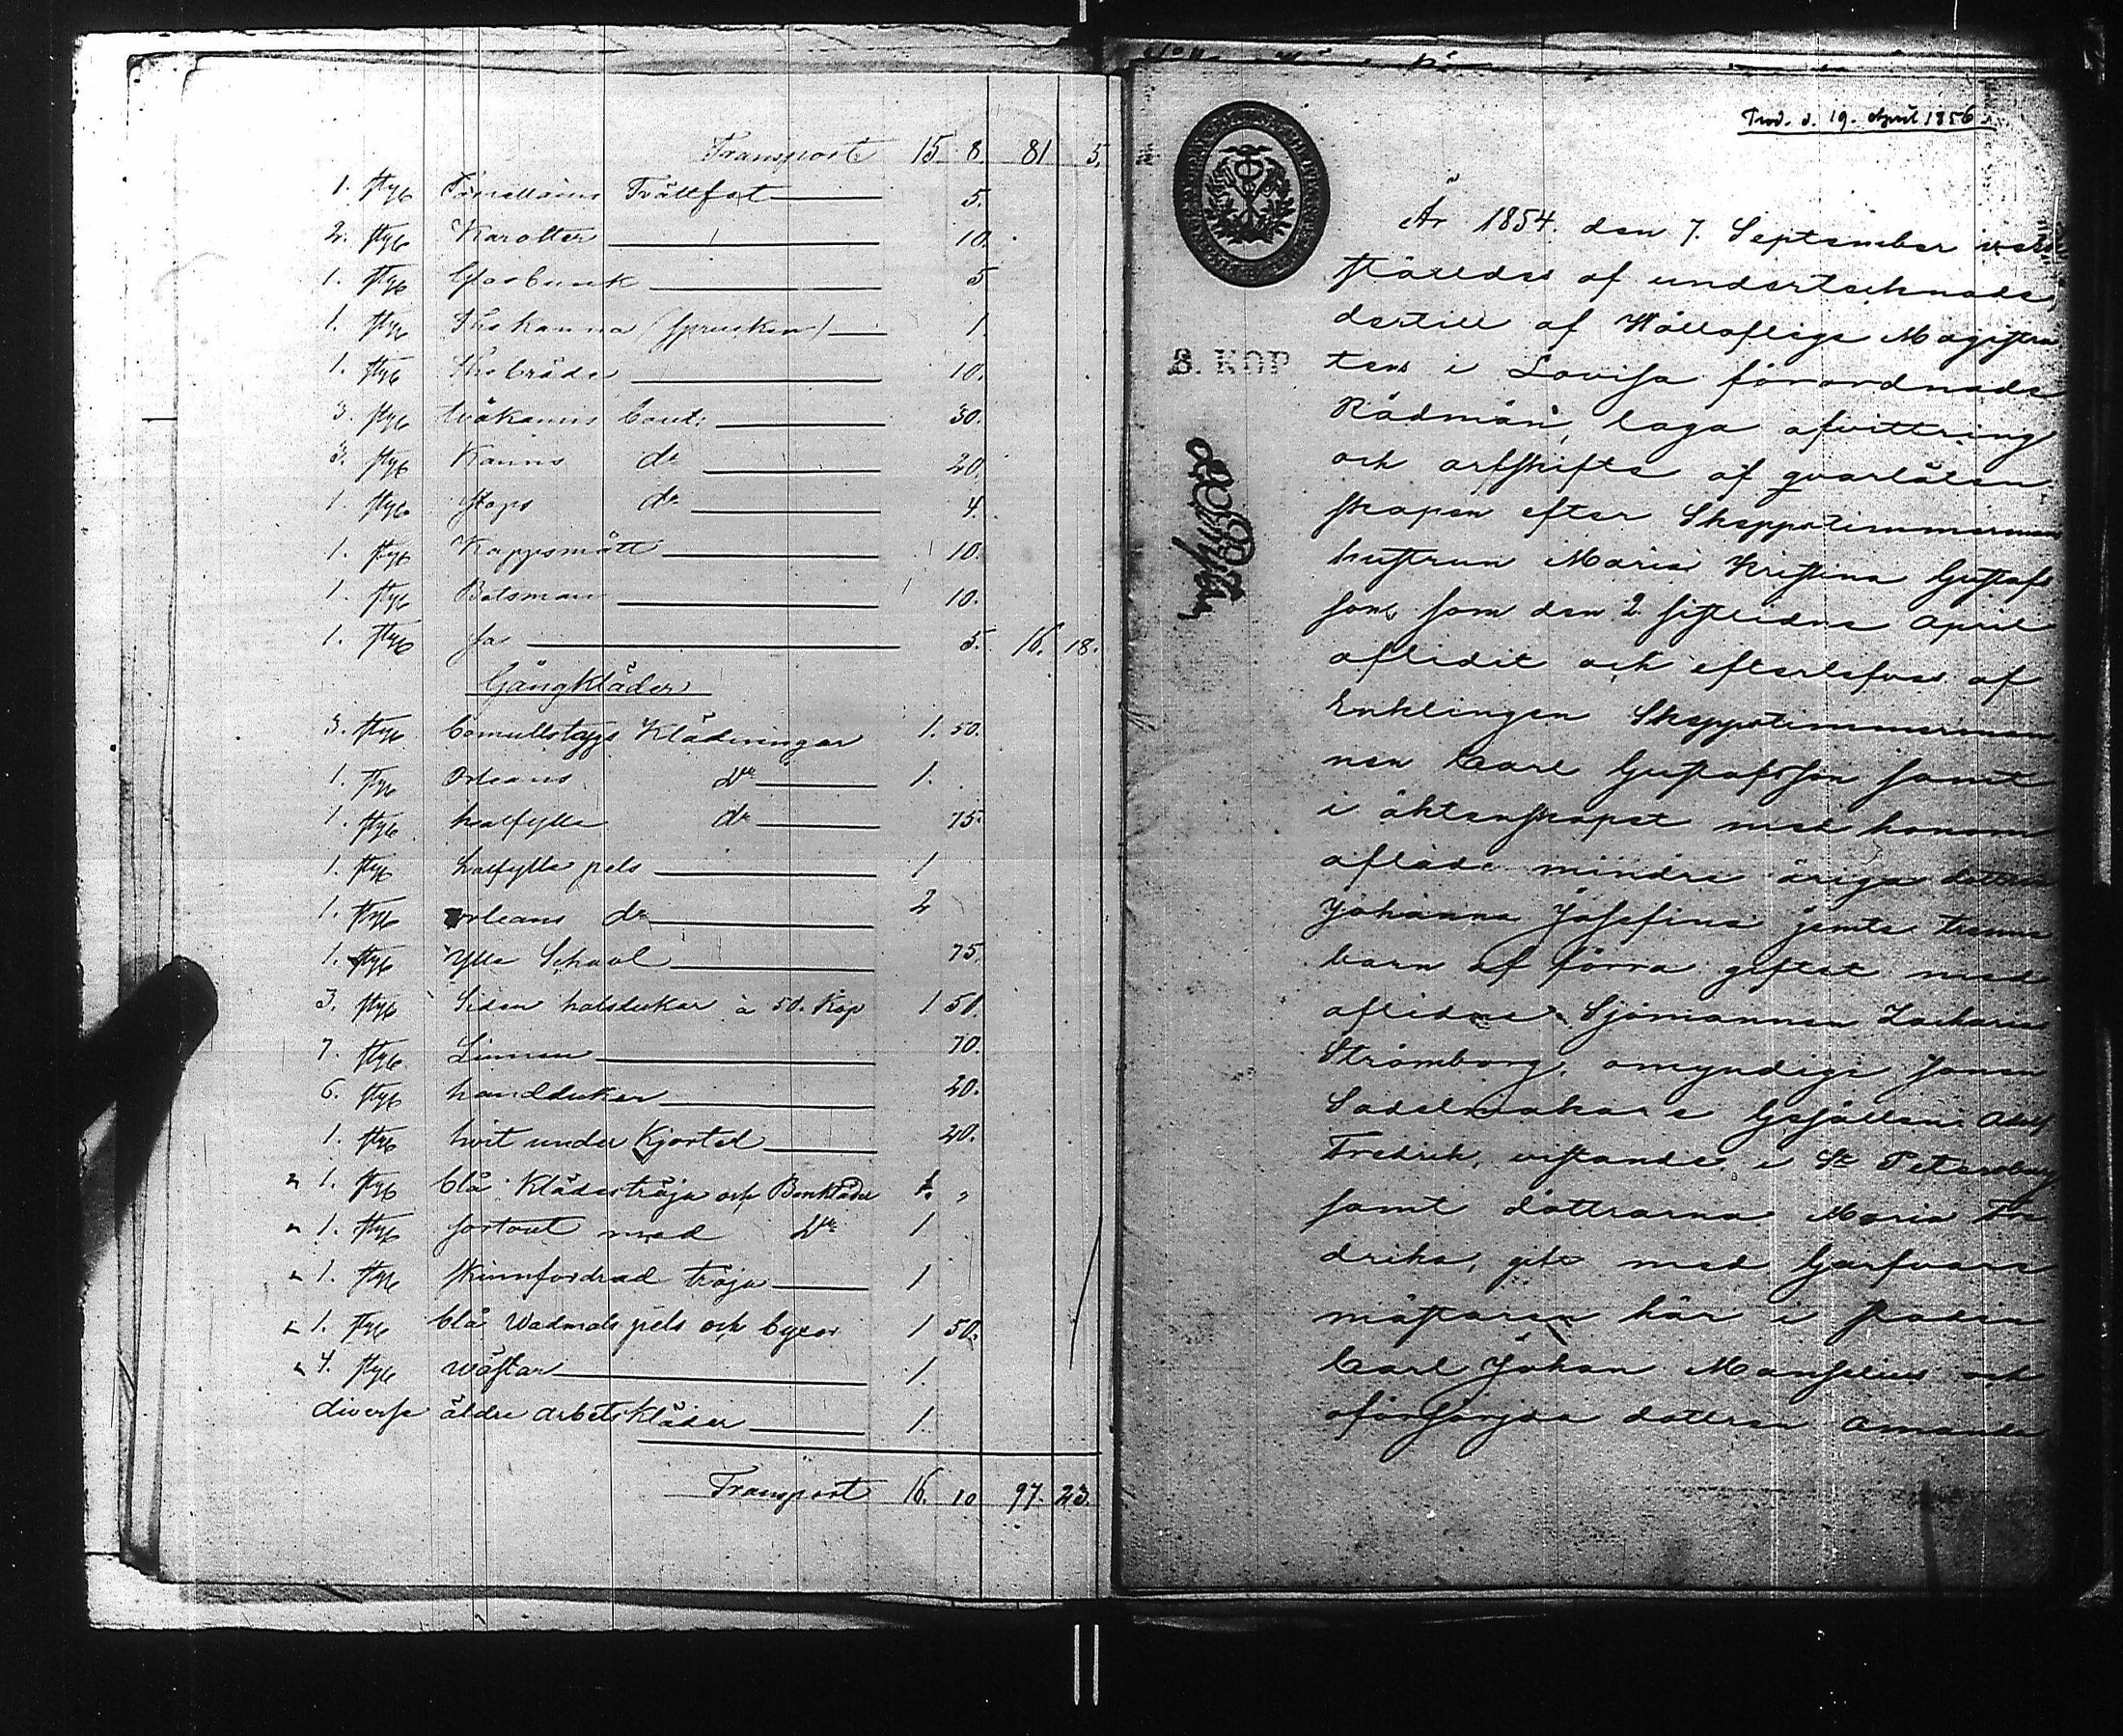 Transport 15 8. 81 5.
1. styck Porcellains Tvättfat 5.
2. styck Karotter 10.
1. styck Glasburk 5
1. styck Thekanna (sprucken) 1.
1. styck Thebräde 10.
3. styck tvåkanns bout: 30.
3. styck Kanns do 20.
1. styck stops do 4.
1. styck Kappsmått 10.
1. styck Betsman 10.
1. styck 5. 16. 18.
Gångkläder
3. styck bomullstygs Klädningar 1. 50.
1. styck Orleans do 1.
1. styck halfylle do 75.
1. styck halfylle pels 1
1. styck orleans do 2
1. styck Ylle Schaal 75.
3. styck Siden halsdukar à 50. Kop 1 50.
7. styck Linnen 70.
6. styck handdukar 20.
1. styck hvit under Kjortel 20.
1. styck blå Klädeströja och Benkläder 1. "
1. styck sortout med do 1
1. styck skinnfordrad tröja 1
1. styck blå Wadmals pels och byxor 1 50.
4. styck wästar 1.
diverse äldre arbetskläder 1.
Transport 16. 10 97. 23.
Prod. d. 19. April 1856.
3. KOP
År 1854. den 7. September verk
ställdes af undertecknade,
dertill af Wällofliga Magistra
ten i Lovisa förordnade
Rådmän, laga afvittring
och arfskifte af qvarlåten
skapen efter Skeppstimmerman
hustrun Maria Kristina Gustafs
son, som den 2. sistlidne April
aflidit och efterlefves af
Enklingen Skeppstimmerman
nen Carl Gustafsson samt
i äktenskapet med honom
aflade minderåriga dottren
Johanna Josefina jemte trenne
barn af förra giftet med
aflidne Sjömannen Zacharias
Strömborg, omyndige sonen
Sadelmakare Gesällen Adolf
Fredrik, vistande i St Petersburg
samt döttrarna Maria Fre
drika, gift med Garfvare
mästaren här i staden
Carl Johan Manselius och
oförsörjda dottren Amanda